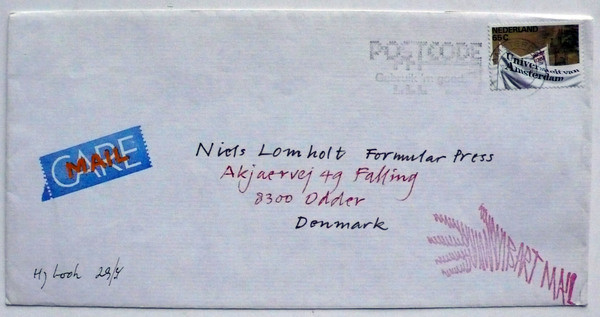 NEDERLAND
65C
Universiteit van
Amsterdam
POSTCODE
CARE
MAIL
Niels Lomholt Formular Press
Akjaervej 49 Falling
8300 Odder
Denmark
ART MAIL